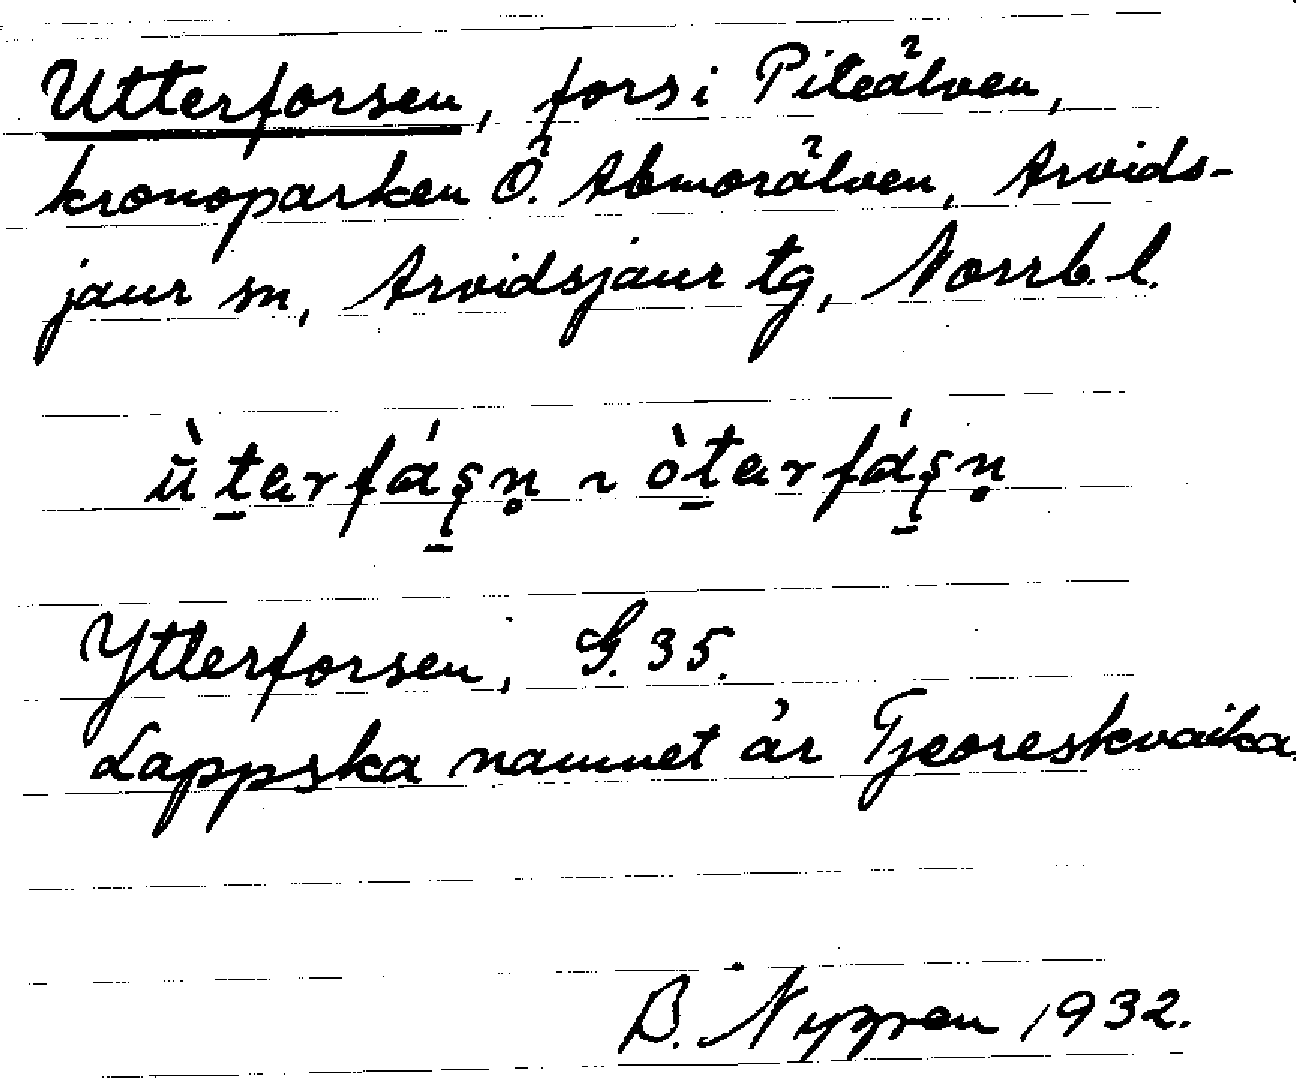 Utterforsen, fors i Piteälven,
kronoparken Ö. Abmorälven, Arvids-
jaur sn, Arvidsjaur tg, Norrb. l.
ù̄t̠ərfáʂn̥ ~ òt̠ərfáʂn̥
Ytterforsen, G. 35.
Lappska namnet är Tjeoreskvaika.
B. Nygren 1932.